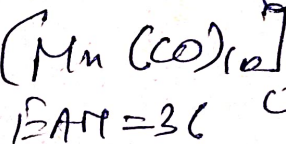 [Mn(CO)10]
EAM=36